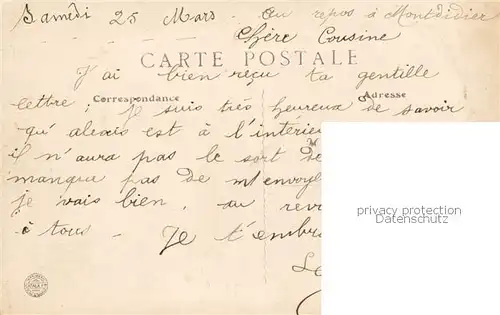 Samedi 25 Mars - Au repos à Montdidier
Chère Cousine
CARTE POSTALE
J'ai bien reçu ta gentille
Correspondance Adresse
lettre; je suis très heureux de savoir
qu' alexis est à l'intérieu
il n'aura pas le sort de
manque pas de m'envoy
je vais bien, au revo
à tous - Je t'embra
privacy protection
Datenschutz